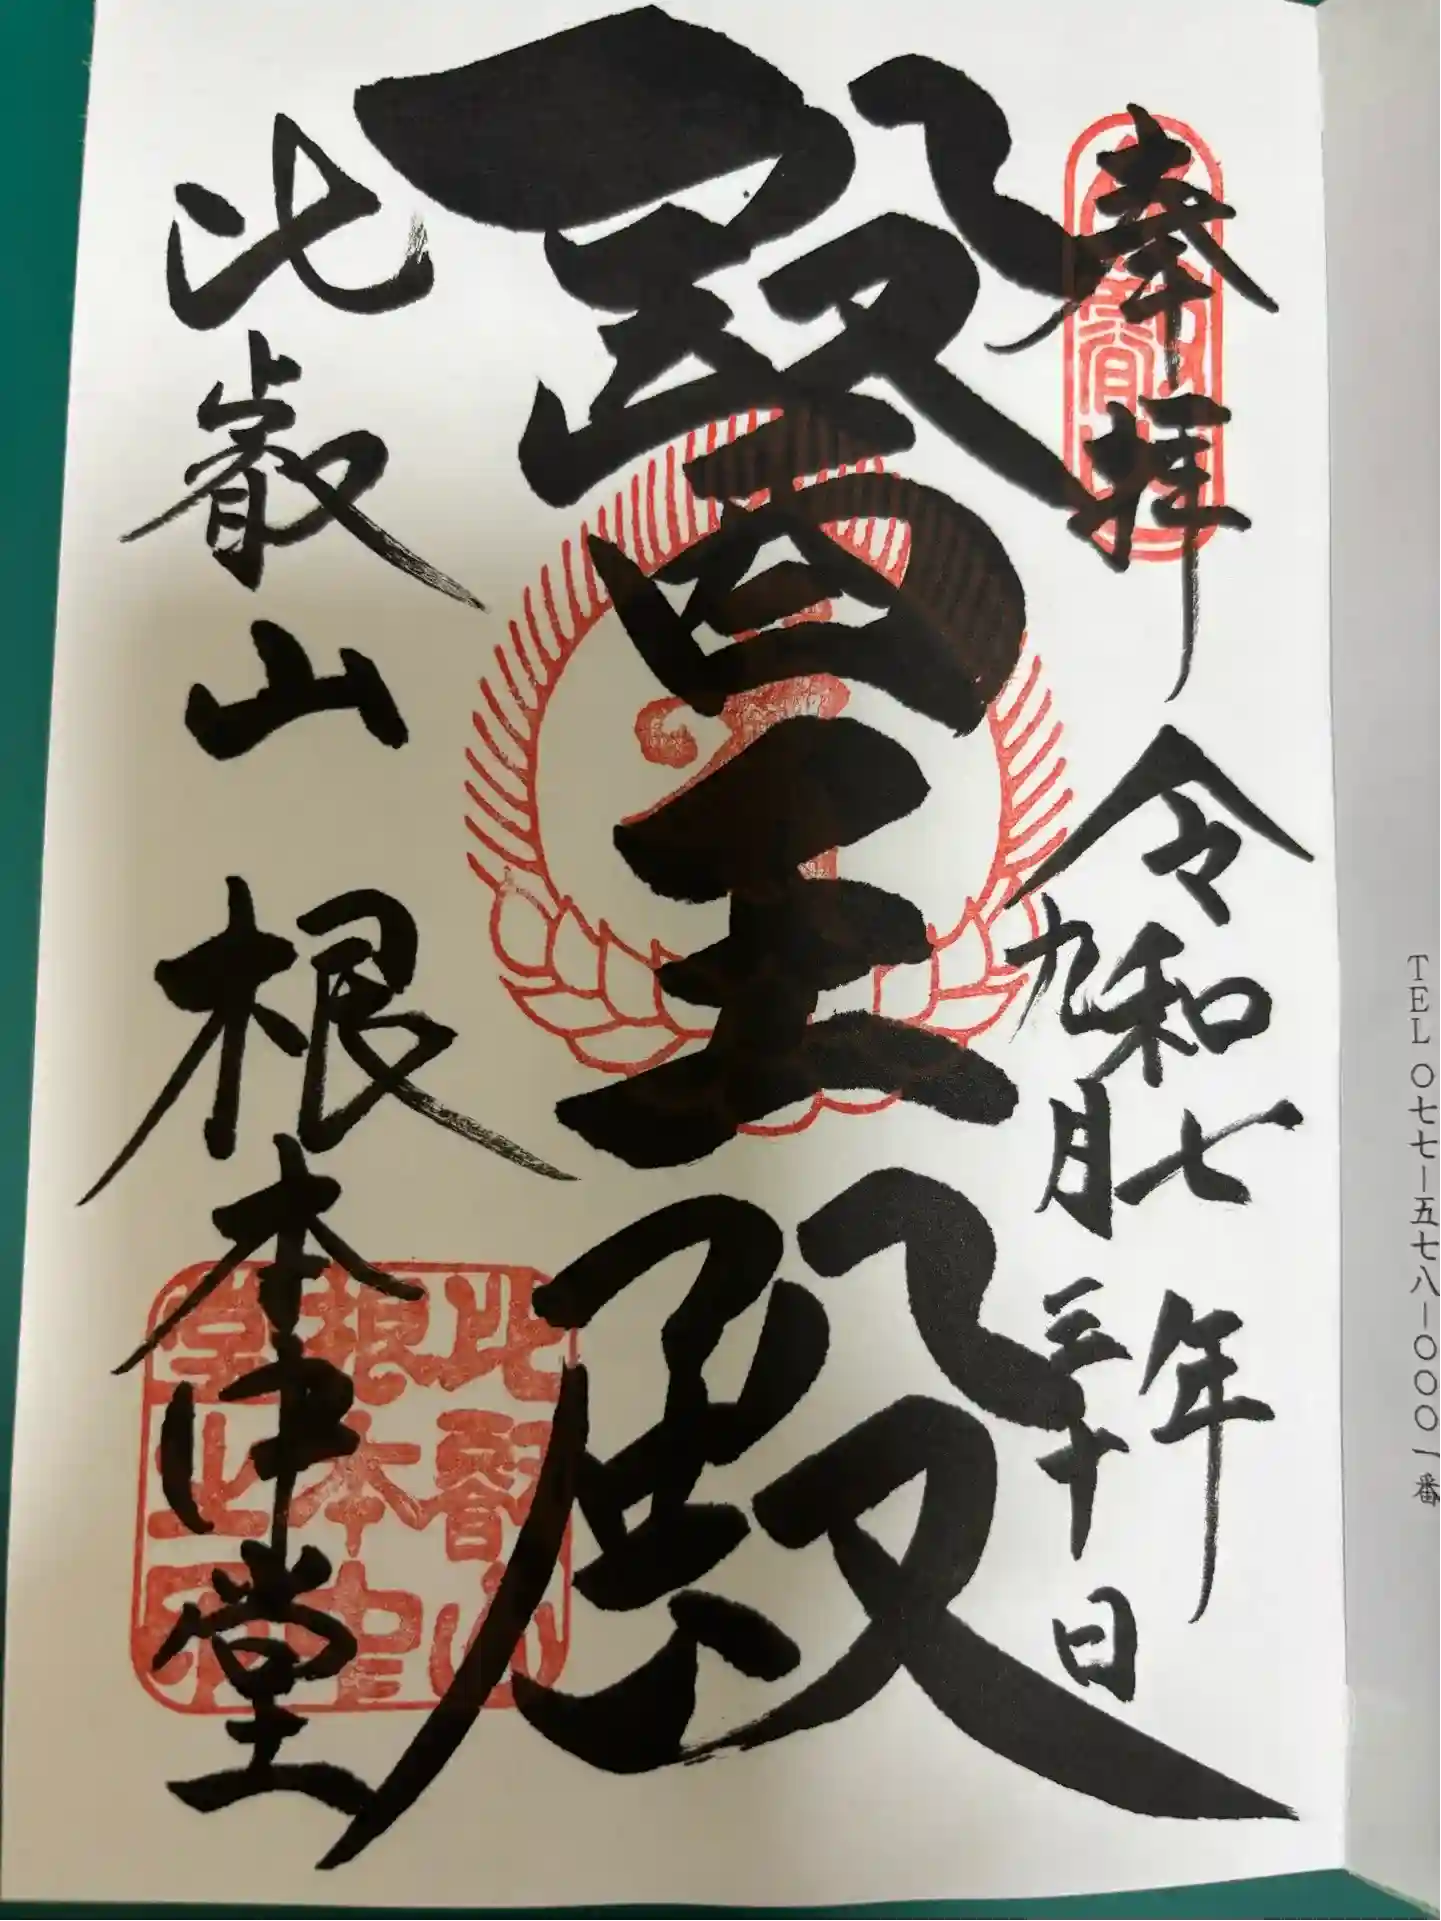 奉拝
令和七年
九月三十日
醫王殿
比叡山 根本中堂
比叡山
根本中
堂之印
TEL〇七七―五七八―〇〇〇一番